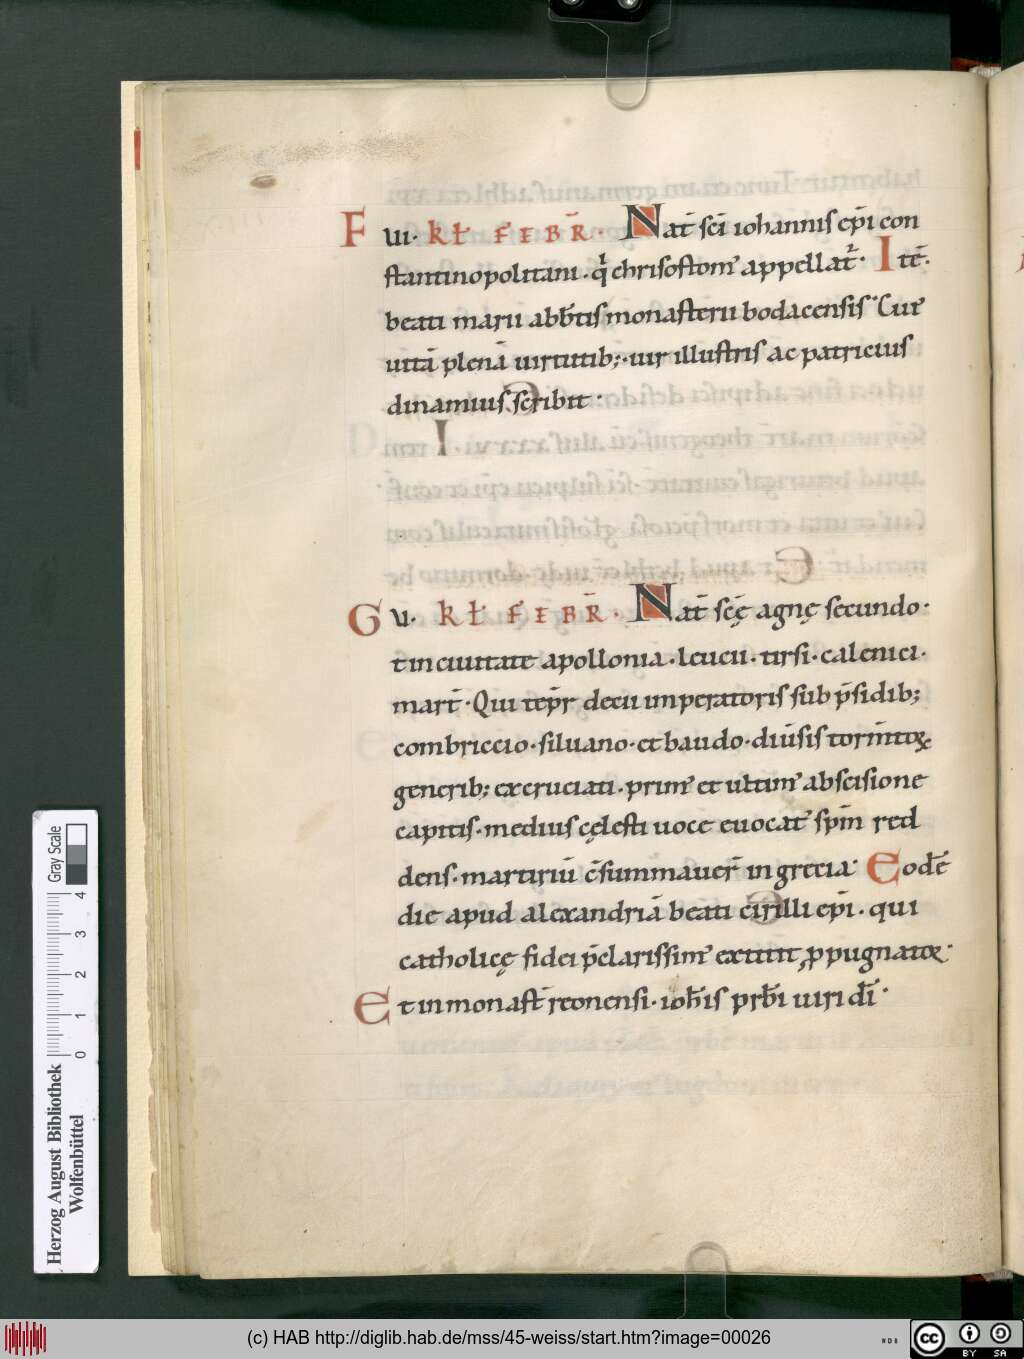 F ui· kł FEBR̄· Nat̄ sc̄i iohannis ep̄i con
stantinopolitani· q̓ chrisostom᾽ appellat᷑· Itē·
beati marii abb̄tis monasterii bodacensis· Cui᾽
uitā plenā uirtutib;· uir illustris ac patricius
dinamius scribit·
G u· kł FEBR̄· Nat̄ sc̄ę agnę secundo·
t in ciuitate apollonia· leucii· tirsi· calenici·
mart̄· Qui tēpr decii imperatoris sub p̄sidib;
combriccio· siluano· et baudo· diūsis torm̄toꝝ
generib; excruciati· prim᾽ et ultim᾽ abscisione
capitis· medius cęlesti uoce euocat᾽ sp̄m red
dens· martiriū c̄summauer̄ in grecia· Eodē
die apud alexandriā beati cirilli ep̄i· qui
catholicę fidei p̄clarissim᾽ extitit ꝓpugnator·
Et in monast̄ reonensi· ioh̄is prb̄i uiri dī·
Herzog August Bibliothek
Wolfenbüttel
0 1 2 3 4
Gray Scale
(c) HAB http://diglib.hab.de/mss/45-weiss/start.htm?image=00026
cc BY SA